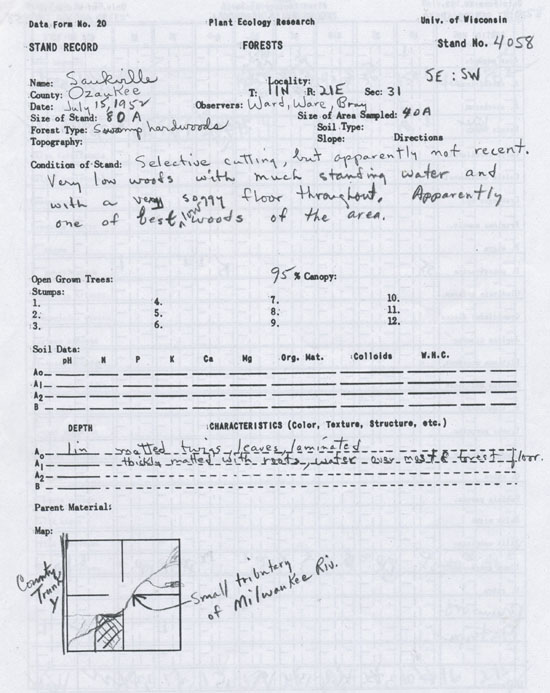 Data Form No. 20 Plant Ecology Research Univ. of Wisconsin
STAND RECORD FORESTS Stand No. 4058
Name: Saukville Locality: SE : SW
County: Ozaukee T: 11N R: 21E Sec: 31
Date: July 15, 1952 Observers: Ward, Ware, Bray
Size of Stand: 80 A Size of Area Sampled: 40A
Forest Type: Swamp hardwoods Soil Type:
Topography: Slope: Directions
Condition of Stand: Selective cutting, but apparently not recent.
Very low woods with much standing water and
with a very soggy floor throughout. Apparently
one of best low woods of the area.
Open Grown Trees: 95 % Canopy:
Stumps:
1. 4. 7. 10.
2. 5. 8. 11.
3. 6. 9. 12.
Soil Data:
pH N P K Ca Mg Org. Mat. Colloids W.H.C.
Ao
A1
A2
B
DEPTH CHARACTERISTICS (Color, Texture, Structure, etc.)
Ao 1in matted twigs, leaves, laminated
A1 thickly matted with roots, water over most of forest floor.
A2
B
Parent Material:
Map:
County
Trunk
Y
Small tributary
of Milwaukee Riv.